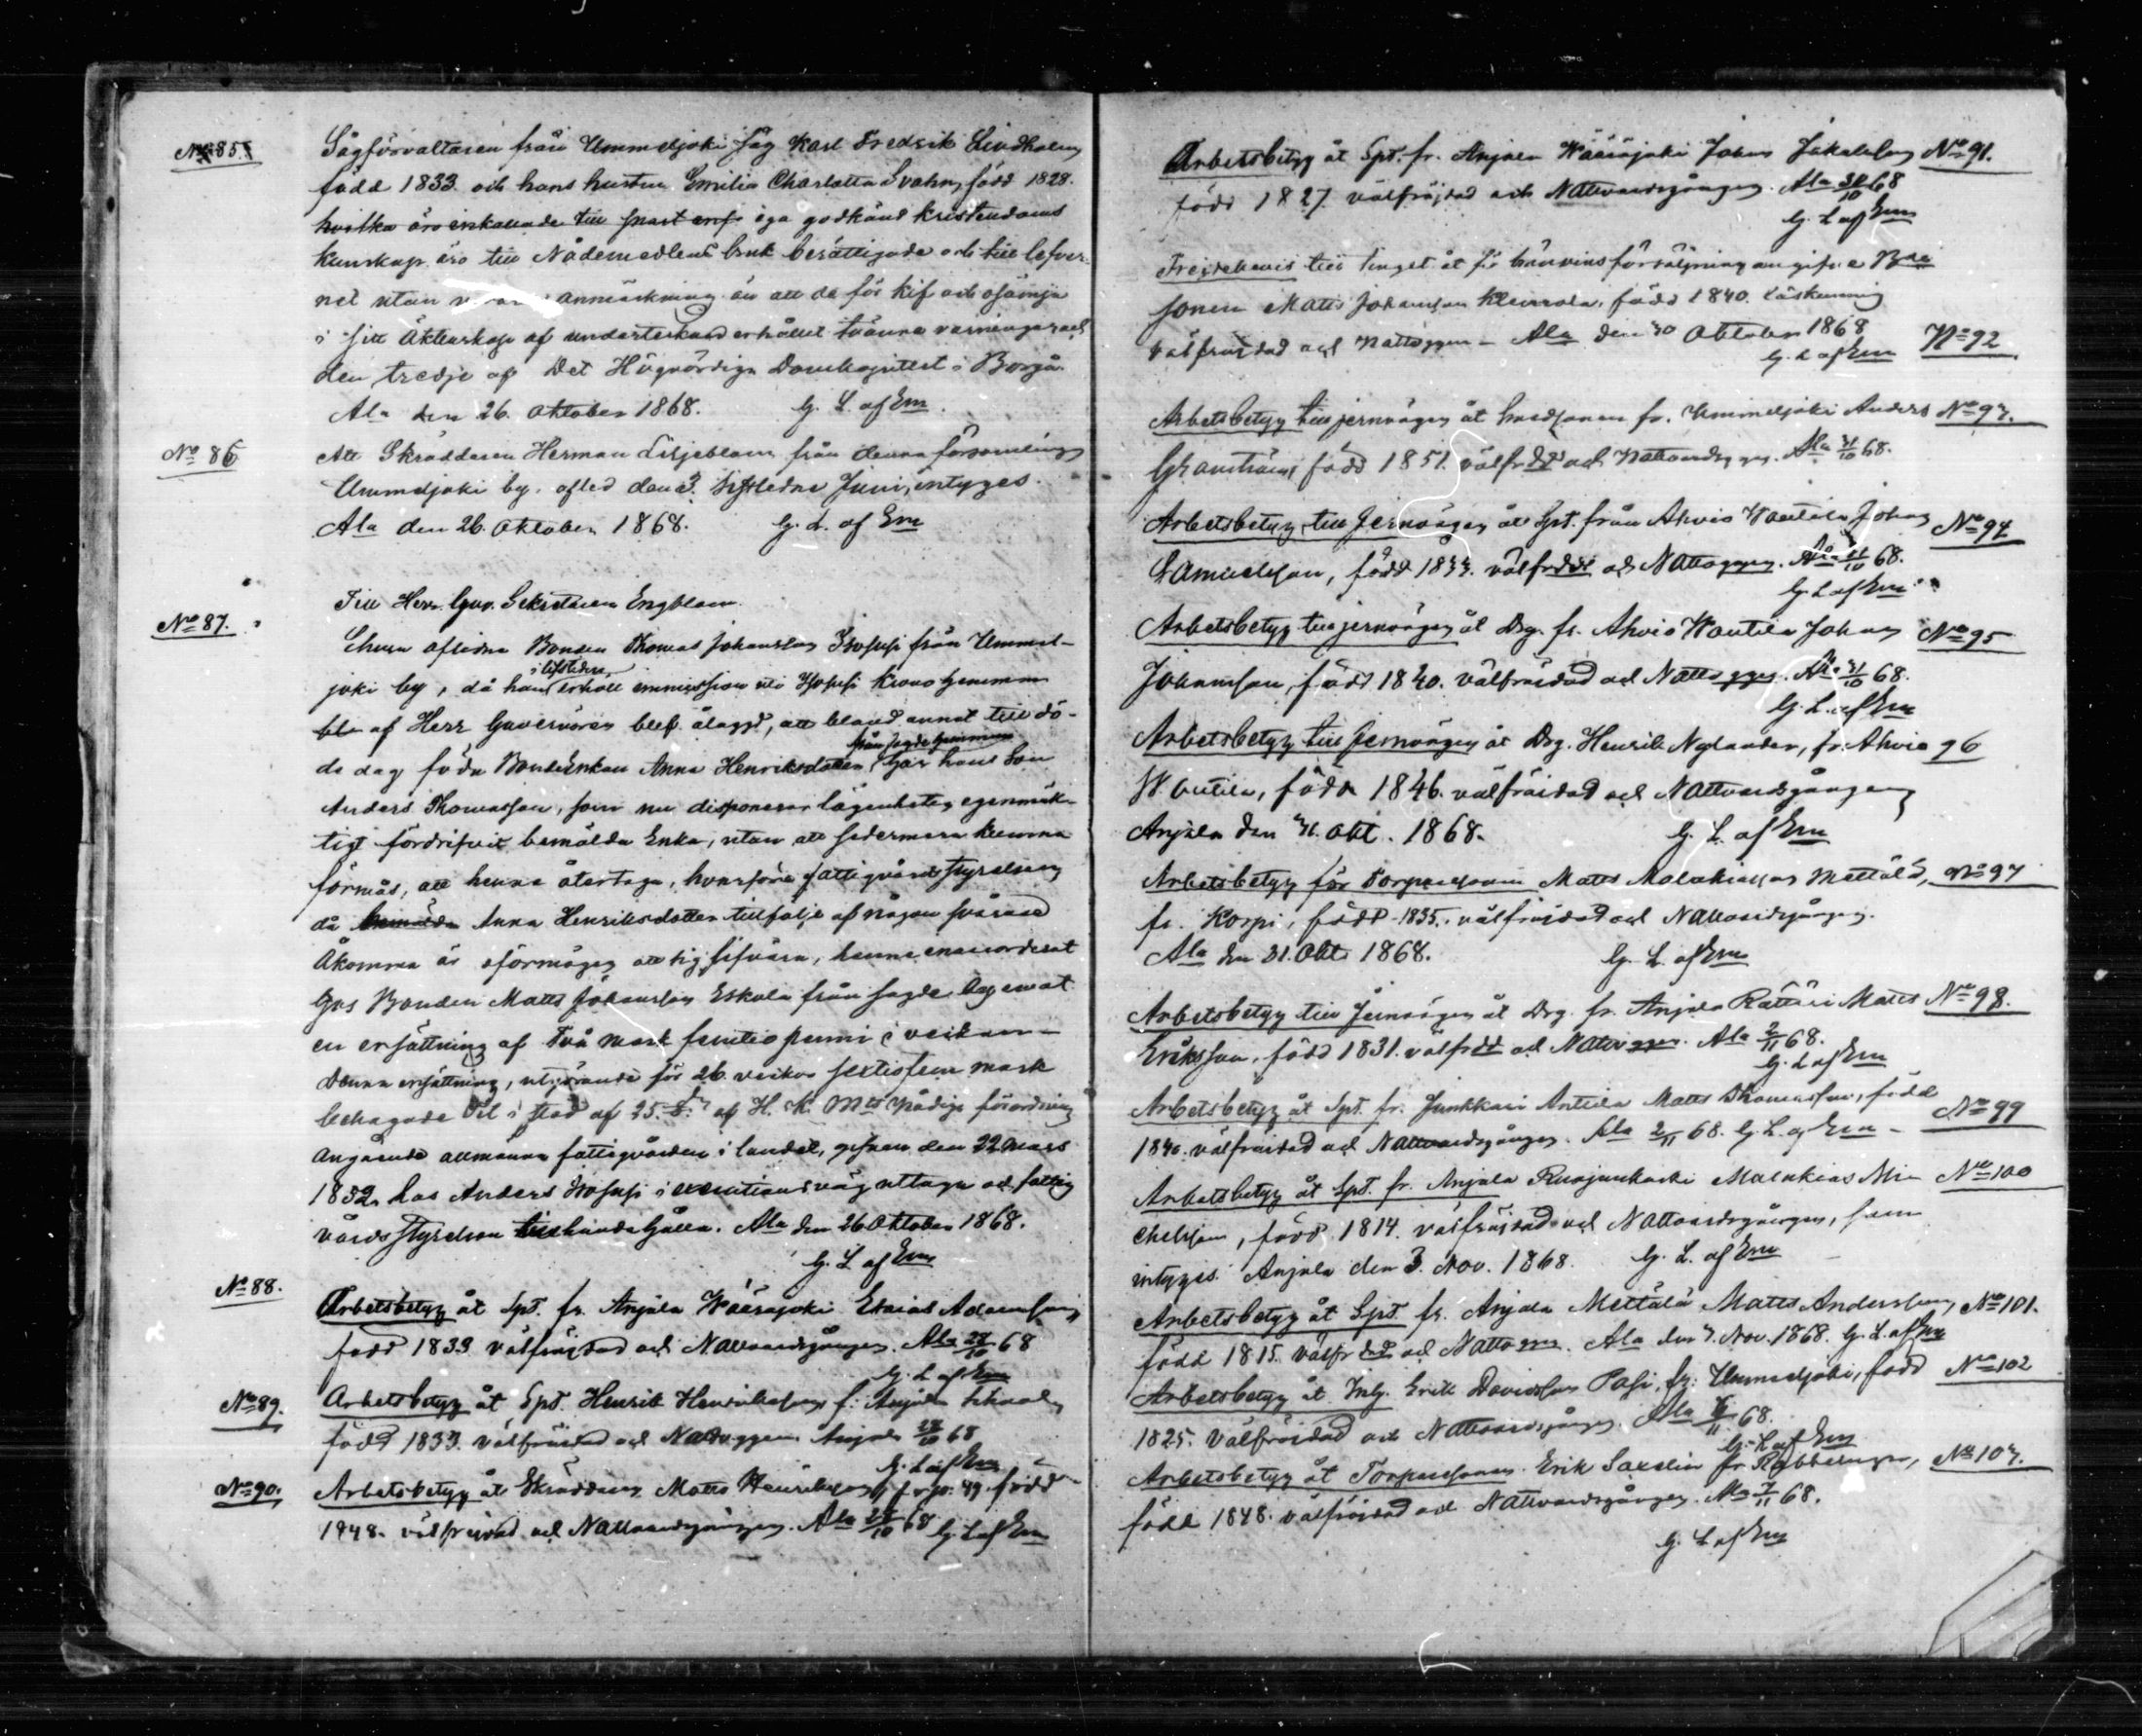 No 85.
Sågförvaltaren från Ummeljoki såg Karl Fredrik Lindholm
född 1833 och hans hustru Emilia Charlotta Svahn, född 1828.
hvilka äro enkallade till ega godkänd kristendoms
kunskap äro till Nådemedlens bruk berättigade och till lefver-
net utan anmärkning än att de för kif och osämja
i sitt äktenskap af undertecknad erhållit tvänne varningar och
den tredje af Det Högvördiga Domkapitlet i Borgå.
Ala den 26. Oktober 1868. G. L. af Em
No 86
Att Skräddaren Herman Liljeblom från denna församling
Ummeljoki by. afled den 3. sistledne Juni, intyges.
Ala den 26. Oktober 1868. G. L. af Em
Till Herr Guv. Sekreteraren Engblom.
No 87.
afledne Bonden Thomas Johansson från Ummel-
i lifstiden
joki by, då han erhöll immission uti Krono hemman
af Herr Guvernören blef ålaggd, att bland annat till dö-
från sagde hemman
de dag föda Bonde Enkan Anna Henriksdotter, har hans Son
Anders Thomasson, som nu disponerar lägenheten egenmäk-
tigt fördrifvit bemälda Enka, utan att sedermera kunna
förmås, att henne återtaga, hvarföre fattigvårdsstyrelsen
då bemälda Anna Henriksdotter tillfölje af någon svårare
Åkomma är oförmögen att sig, henne
hos Bonden Matts Johansson Eskola från sagde by emot
en ersättning af Två mark femtio penni i veckan -
denna ersättning, utgörande för 26. veckor sextiofem mark
behagade i stöd af 25. § af H. K. Mts Nådiga förordning
Angående allmänna fattigvården i landet, gifven den 22 Mars
1852. hos Anders i executionsväg uttaga och fattig
vårds styrelsen tillhandahålla. Ala den 26 Oktober 1868.
G. L. af Em
No 88.
Arbetsbetyg åt Spt. fr. Anjala Wääräjoki Esaias Adamsson
född 1833 välfräjdad och Nattvardsgången. Ala 28/10 68
G. L. af Em
No 89.
Arbetsbetyg åt Spt. Henrik Henriksson f. Anjala
född 1833. välfräjdad och Anjala 28/10 68
G. L. af Em
No 90.
Arbetsbetyg åt Skräddaren Matts Henriksson, född
1848. välfräjdad och Nattvardsgången. Ala 28/10 68 G. L. af Em
Arbetsbetyg åt Spt. fr. Anjala Wääräjoki Johan No 91.
född 1827 välfräjdad och Nattvardsgången. Ala 30/10 68
G. L. af Em
Frejdebevis till Tinget åt för bränvinsförsäljning angifne
sonen Matts Johansson, född 1840. läskunnig
välfräjdad och Nattvgngen - Ala den 30 Oktober 1868 No 92
G. L. af Em
Arbetsbetyg till jernvägen åt fr. Ummeljoki Anders No 93.
född 1851. välfrdd och Nattvardsgng. Ala 31/10 68.
Arbetsbetyg till Jernvägen åt Spt. från Ahvio Wontila Johan No 94
Samuelsson, född 1833. välfrdd och Nattvgngen. Ala 31/10 68.
G. L. af Em
Arbetsbetyg till jernvägen åt Drg. fr. Ahvio Wontila Johan No 95
Johansson, född 1840. välfräjdad och Nattvgngen. Ala 31/10 68.
G. L. af Em
Arbetsbetyg till Jernvägen åt Drg. Henrik Nylander, fr. Ahvio 96
Wontila, född 1846. välfräjdad och Nattvardsgången
Anjala den 31. Okt. 1868. G. L. af Em
Arbetsbetyg för Torparesonen Matts Malakiasson Mettälä, No 97
fr. Korpi, född 1835. välfräjdad och Nattvardsgången.
Ala den 31. Okto 1868. G. L. af Em
Arbetsbetyg till Jernvägen åt Drg. fr. Anjala Rättäri Matts No 98.
Eriksson, född 1831. välfrdd och Nattvgngen. Ala 2/11 68.
G. L. af Em
Arbetsbetyg åt Spt. fr. Junkkari Anttila Matts Thomasson, född
1840. välfräjdad och Nattvardsgången. Ala 2/11 68. G. L. af Em - No 99
Arbetsbetyg åt Spt. fr. Anjala Malakias Mi- No 100
chelsson, född 1814. välfräjdad och Nattvardsgången, som
intyges. Anjala den 3. Nov. 1868. G. L. af Em
Arbetsbetyg åt Spt. fr. Anjala Mettälä Matts Andersson, No 101.
född 1815. välfrdd och Nattvgng. Ala den 3. Nov. 1868. G. L. af Em
Arbetsbetyg åt Inh. Erik Davidsson Pasi, fr. Ummeljoki, född No 102
1825. välfräjdad och Nattvardsgången. Ala 68.
G. L. af Em
Arbetsbetyg åt Torparesonen Erik Saxelin fr. No 103.
född 1848. välfräjdad och Nattvardsgången. Ala 7/11 68.
G. L. af Em